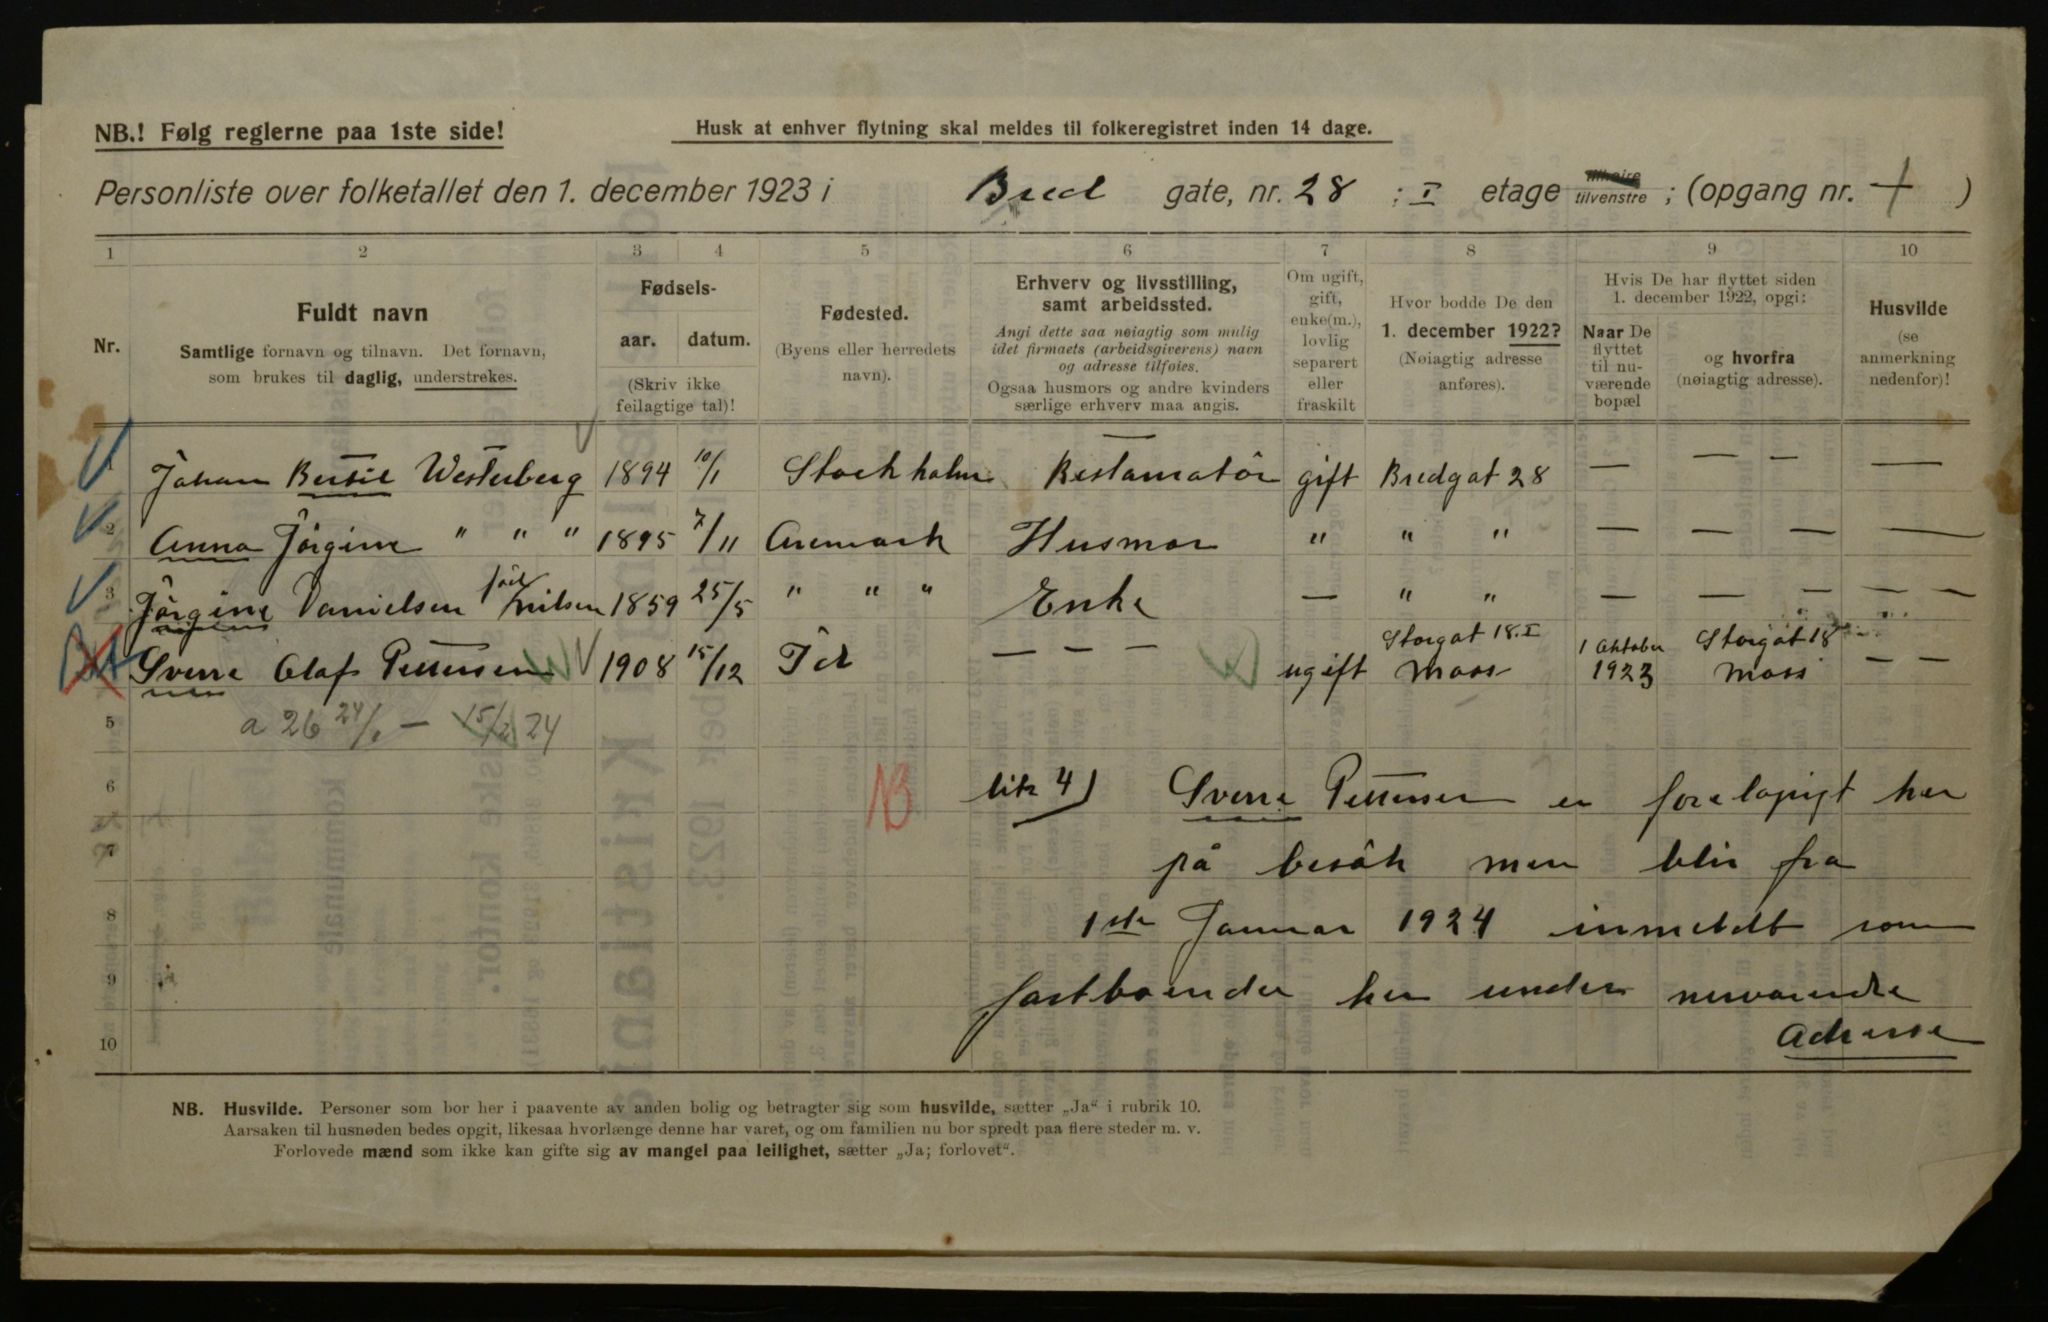 NB.! Følg reglerne paa 1ste side!
Husk at enhver flytning skal meldes til folkeregistret inden 14 dage.
Personliste over folketallet den 1. december 1923 i Bred gate, nr. 28 ; I etage tilhøire tilvenstre ; (opgang nr. )
1 2 3 4 5 6 7 8 9 10
Nr.
Fuldt navn
Samtlige fornavn og tilnavn. Det fornavn,
som brukes til daglig, understrekes.
Fødsels-
aar. datum.
(Skriv ikke
feilagtige tal)!
Fødested.
(Byens eller herredets
navn).
Erhverv og livsstilling,
samt arbeidssted.
Angi dette saa nøiagtig som mulig
idet firmaets (arbeidsgiverens) navn
og adresse tilføies.
Ogsaa husmors og andre kvinders
særlige erhverv maa angis.
Om ugift,
gift,
enke(m.),
lovlig
separert
eller
fraskilt
Hvor bodde De den
1. december 1922?
(Nøiagtig adresse
anføres).
Hvis De har flyttet siden
1. december 1922, opgi:
Naar De
flyttet
til nu-
værende
bopæl
og hvorfra
(nøiagtig adresse).
Husvilde
(se
anmerkning
nedenfor)!
1 Johan Bertil Westerberg 1894 10/1 Stockholm Restauratör gift Bredgat 28 — — — —
2 Anna Jörgine " " " 1895 7/11 Aremark Husmor " " " — — — —
3 Jörgine Danielsen föd Nilsen 1859 25/5 " " " Enke — " " — — — — —
Sverre Olaf Pettersen 1908 15/12 Id — — — ugift Storgat 18.I Moss 1 Oktober 1923 Storgat 18 Moss — —
5 a 26 24/1 — 15/2 24
6 NB litr 4) Sverre Pettersen er foreløpigt her
7 på besök men blir fra
8 1ste Januar 1924 inmeldt som
9 fastboende her under nuværende
10 Adresse
NB. Husvilde. Personer som bor her i paavente av anden bolig og betragter sig som husvilde, sætter „Ja“ i rubrik 10.
Aarsaken til husnøden bedes opgit, likesaa hvorlænge denne har varet, og om familien nu bor spredt paa flere steder m. v.
Forlovede mænd som ikke kan gifte sig av mangel paa leilighet, sætter „Ja; forlovet“.